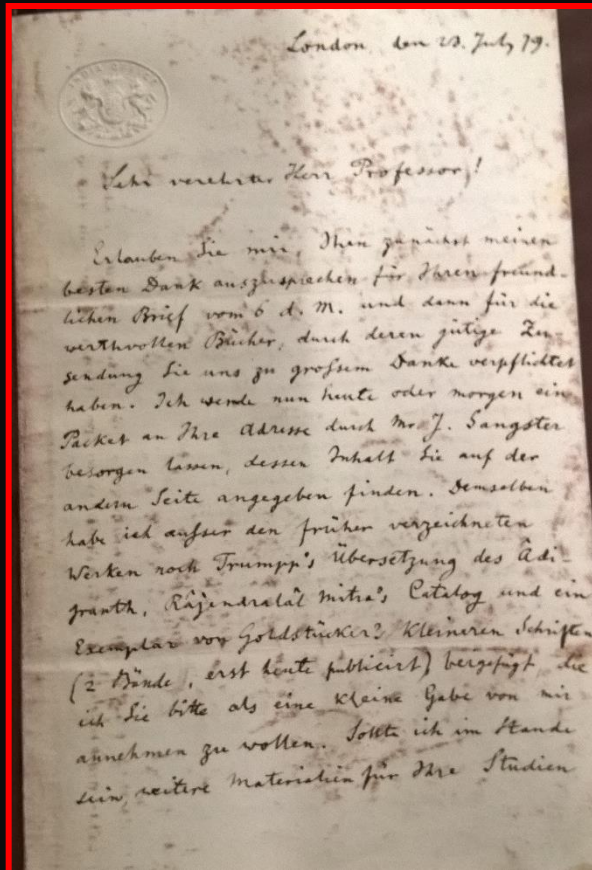 INDIA OFFICE
London, den 23. July 79.
Sehr verehrter Herr Professor!
Erlauben Sie mir, Ihnen zunächst meinen
besten Dank auszusprechen für Ihren freund-
lichen Brief vom 6 d. M. und dann für die
werthvollen Bücher, durch deren gütige Zu-
sendung Sie uns zu grofsem Danke verpflichtet
haben. Ich werde nun heute oder morgen ein
Packet an Ihre Adresse durch Mr. J. Sangster
besorgen lassen, dessen Inhalt Sie auf der
andern Seite angegeben finden. Demselben
habe ich aufser den früher verzeichneten
Werken noch Trumpp's Übersetzung des Âdi-
granth, Râjendralâl Mitra's Catalog und ein
Exemplar von Goldstücker's kleineren Schriften
(2 Bände, erst heute publicirt) beigefügt, die
ich Sie bitte als eine kleine Gabe von mir
annehmen zu wollen. Sollte ich im Stande
sein, weitere Materialien für Ihre Studien